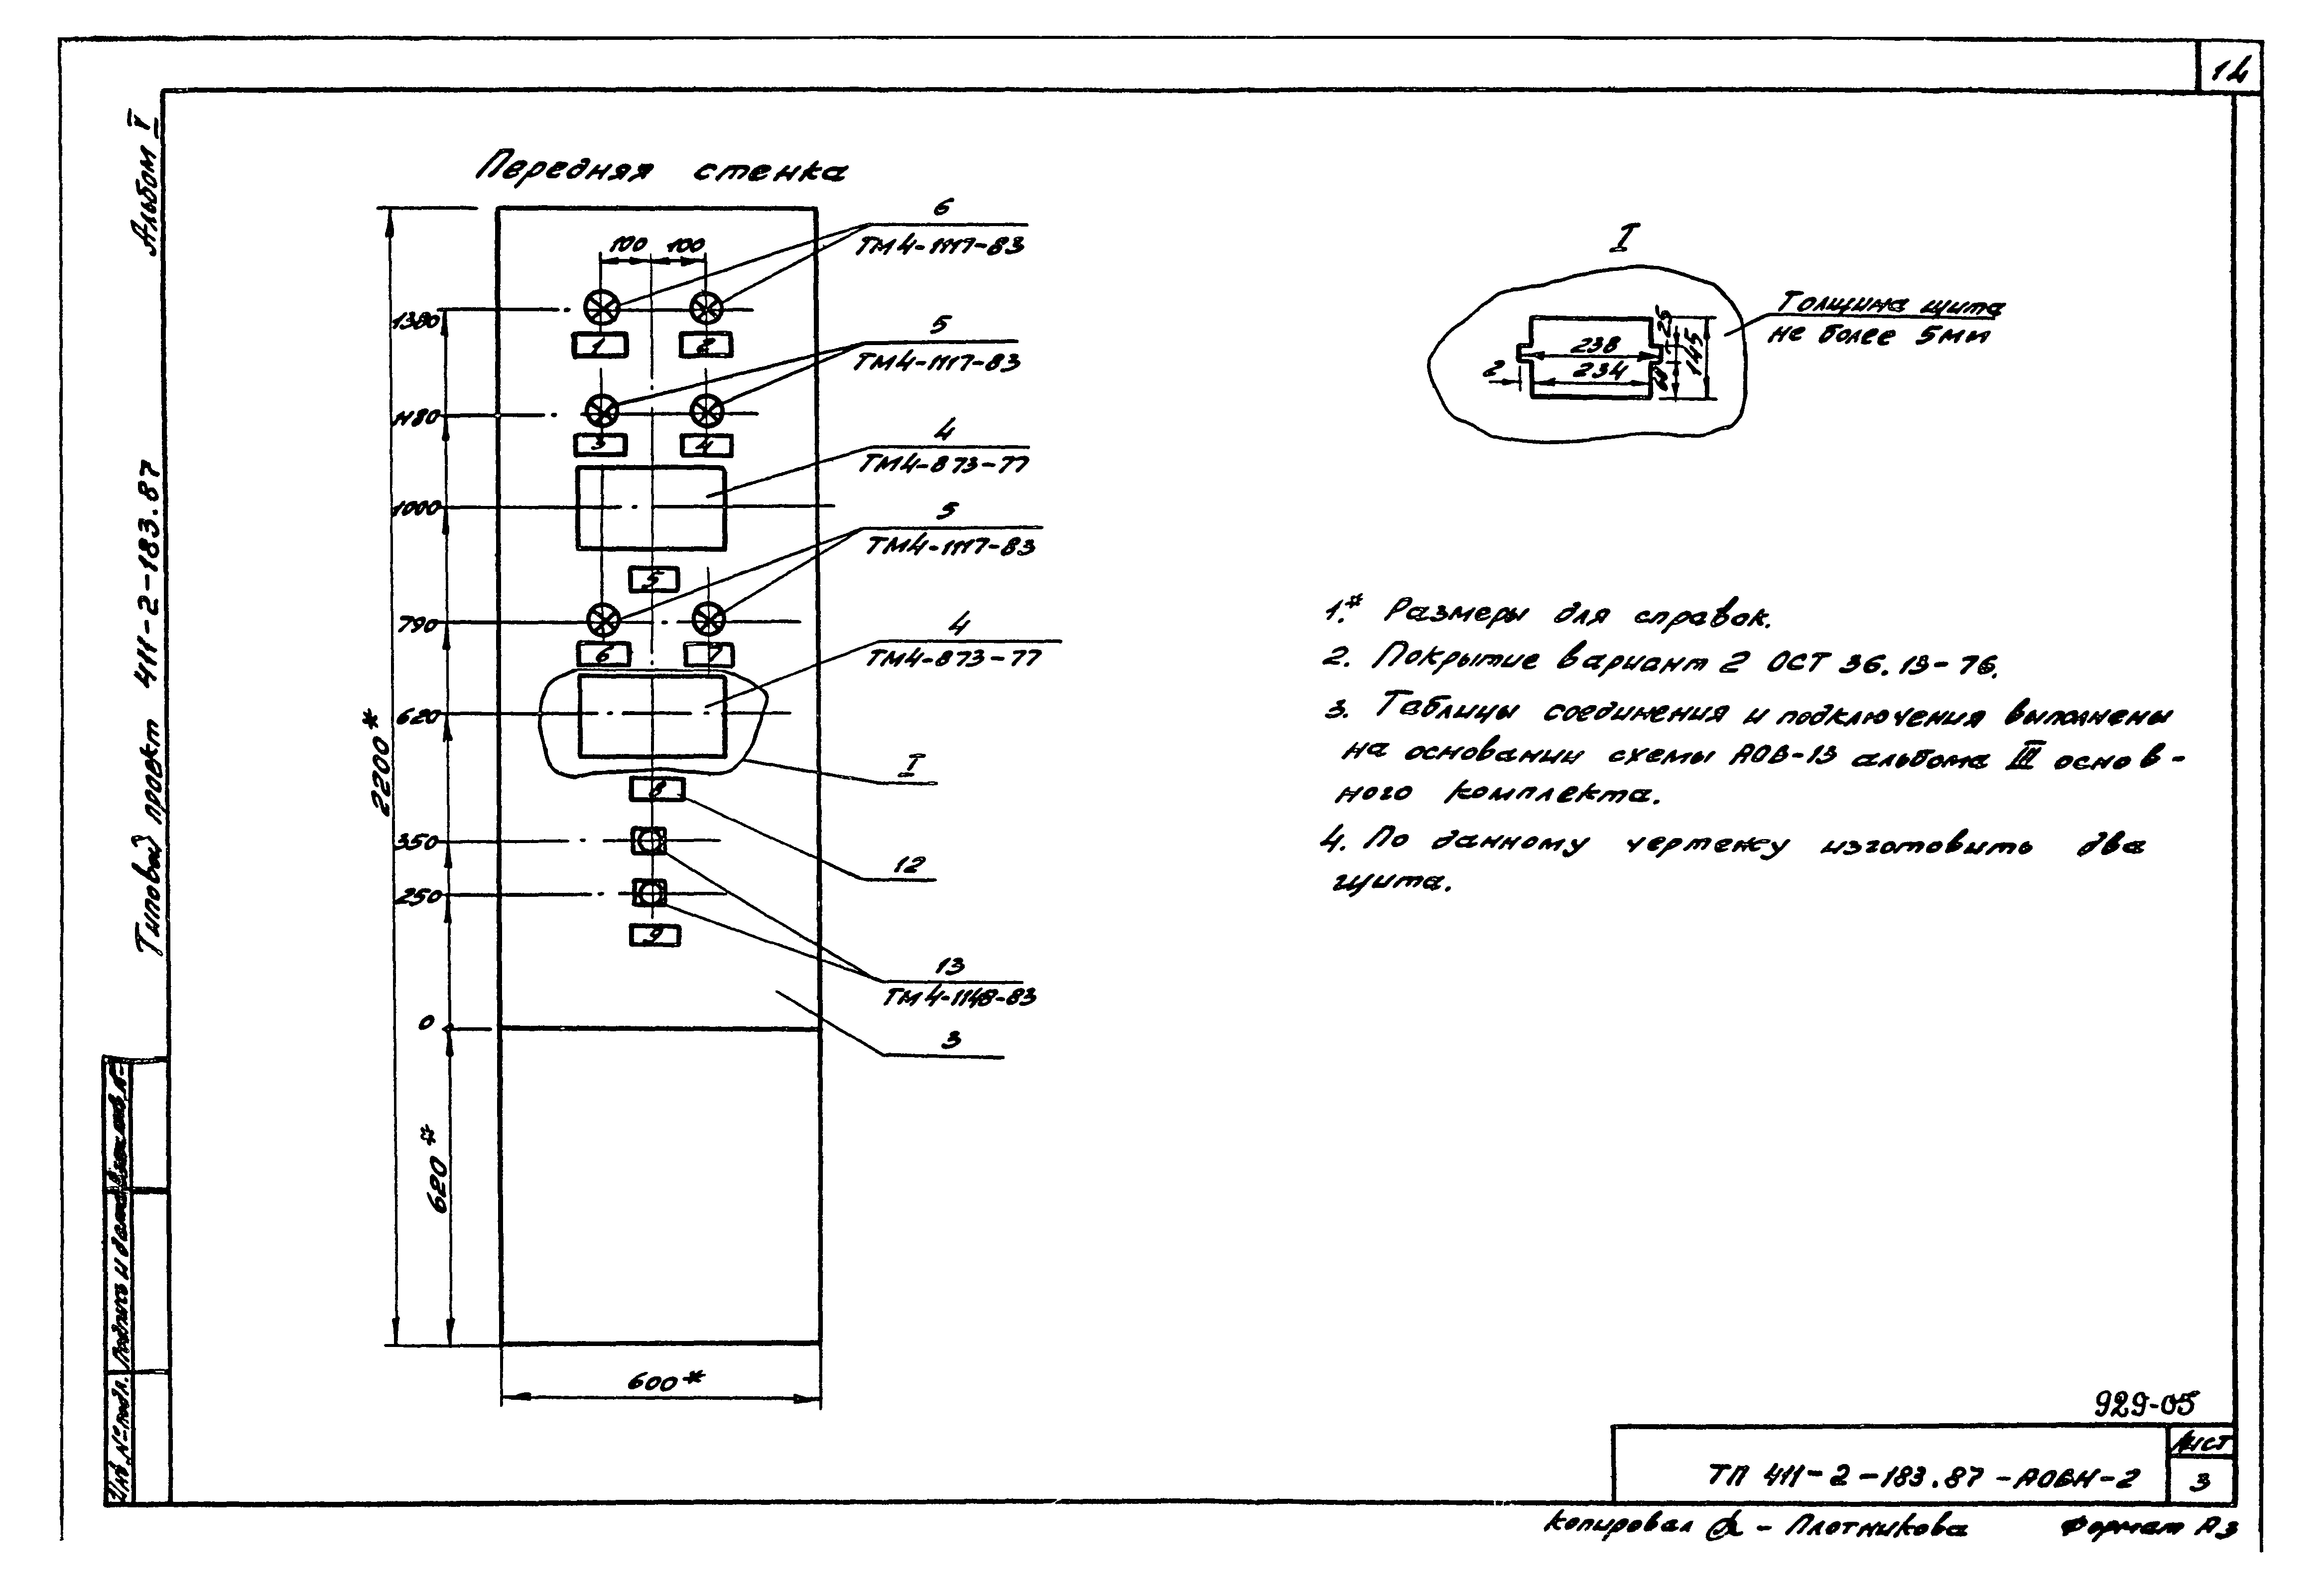 14
Альбом V
Типовой проект 411-2-183.87
Передняя стенка
100 100
6
ТМ4-1117-83
1380
1 2
5
ТМ4-1117-83
1180
3 4
4
ТМ4-873-77
1000
5
ТМ4-1117-83
5
790
6 7
4
ТМ4-873-77
620
2200*
I
8
350
12
250
9
13
ТМ4-1148-83
0
3
620*
600*
I
Толщина щита
не более 5мм
238
234
2
25
60
145
1.* Размеры для справок.
2. Покрытие вариант 2 ОСТ 36.13-76.
3. Таблицы соединения и подключения выполнены
на основании схемы АОВ-13 альбома III основ-
ного комплекта.
4. По данному чертежу изготовить два
щита.
Взам. инв. №
Подпись и дата
Инв. № подл.
929-05
ТП 411-2-183.87-АОВН-2
Лист
3
Копировал - Плотникова
Формат А3